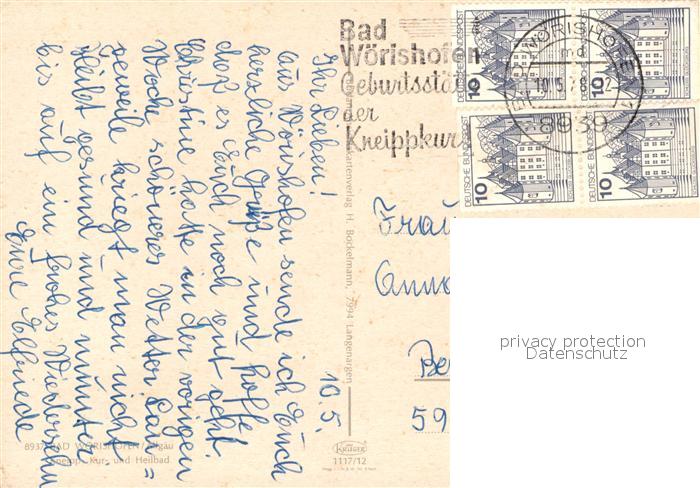 10.5.
Ihr Lieben!
Aus Wörishofen sende ich Euch
herzliche Grüße und hoffe
daß es Euch noch gut geht.
Christine hatte in der vorigen
Woche schöneres Wetter. Lan=
geweile kriegt man nicht.
Bleibt gesund und munter
bis auf ein frohes Wiedersehn
Eure Elfriede
Bad
Wörishofen
Geburtsstä
der
Kneippkur
DEUTSCHE BUNDESPOST
10
10
DEUTSCHE BUNDESPOST
10
DEUTSCHE BUNDESPOST
10
WÖRISHOFE
10.5.
8939
Frau
Anna
59
kartenverlag H. Bockelmann, 7994 Langenargen
8937 BAD WÖRISHOFEN/Allgäu
Kneipp-Kur- und Heilbad
KRÜGER
1117/12
privacy protection
Datenschutz